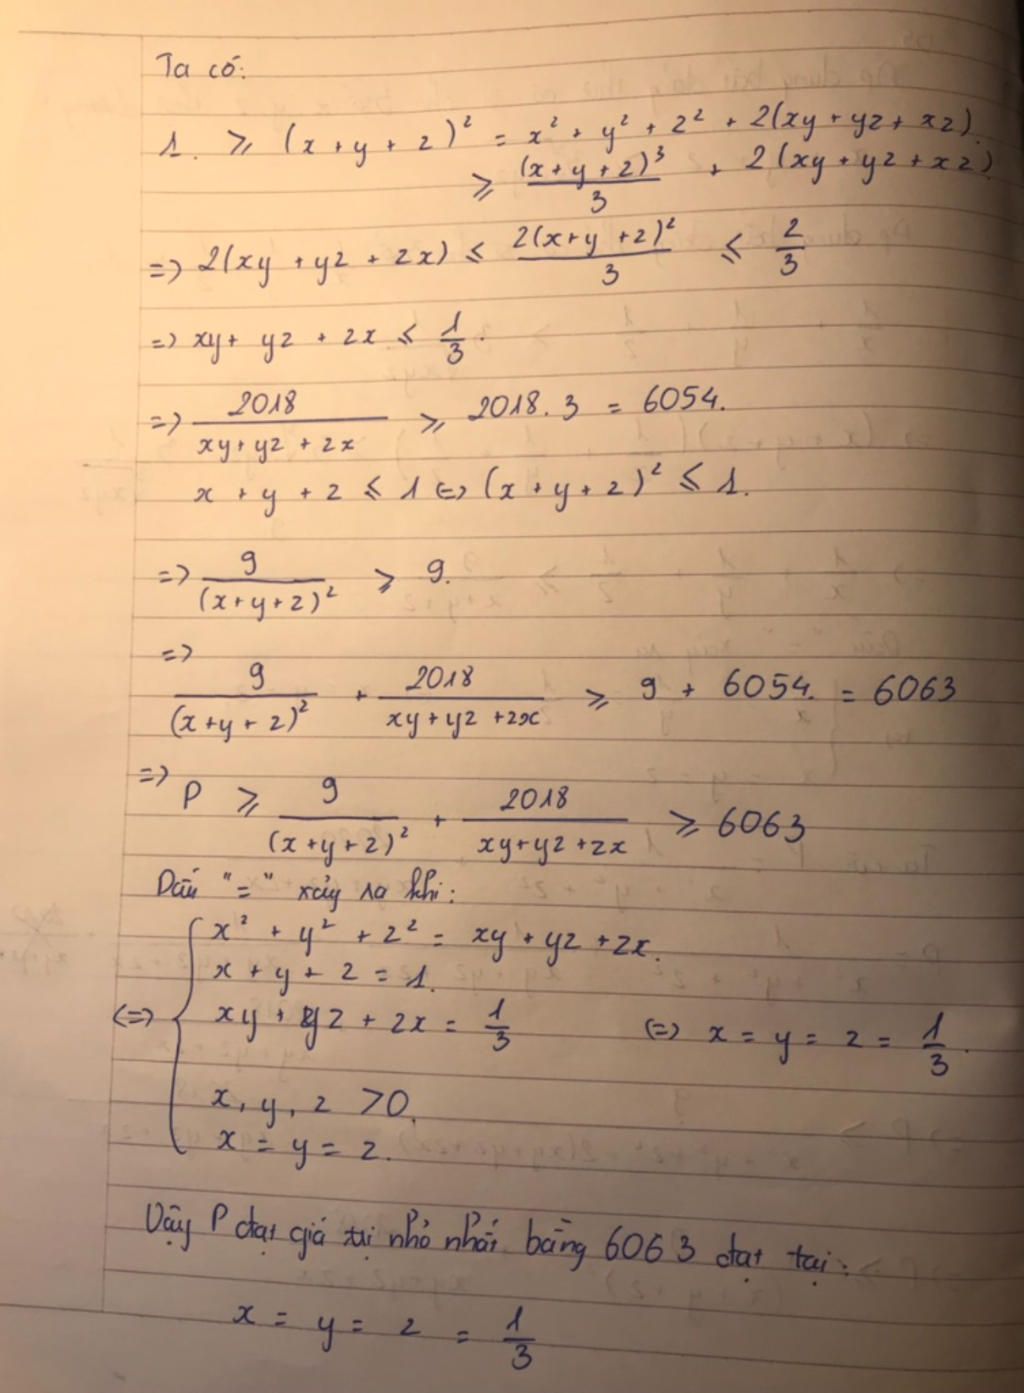 Ta có:
1. ≥ (x + y + z)² = x² + y² + z² + 2(xy + yz + xz)
≥ (x + y + z)³/3 + 2(xy + yz + xz)
=> 2(xy + yz + zx) ≤ 2(x+y+z)²/3 ≤ 2/3
=> xy + yz + zx ≤ 1/3.
=> 2018/(xy+yz+zx) ≥ 2018.3 = 6054.
x + y + z ≤ 1 <=> (x + y + z)² ≤ 1.
=> 9/(x+y+z)² ≥ 9.
=>
9/(x+y+z)² + 2018/(xy+yz+zx) ≥ 9 + 6054. = 6063
=>
P ≥ 9/(x+y+z)² + 2018/(xy+yz+zx) ≥ 6063
Dấu "=" xảy ra khi:
x² + y² + z² = xy + yz + zx.
x + y + z = 1.
<=> { xy + yz + zx = 1/3 <=> x = y = z = 1/3.
x, y, z > 0.
x = y = z.
Vậy P đạt giá trị nhỏ nhất bằng 6063 đạt tại:
x = y = z = 1/3